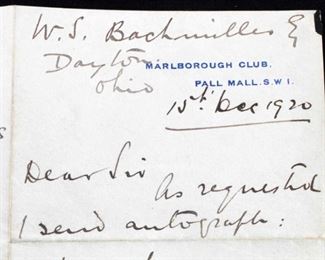 W. S. Bachmiller Esq
Dayton
Ohio
MARLBOROUGH CLUB.
PALL MALL. S.W 1.
15th Dec 1920
Dear Sir
As requested
I send autograph: